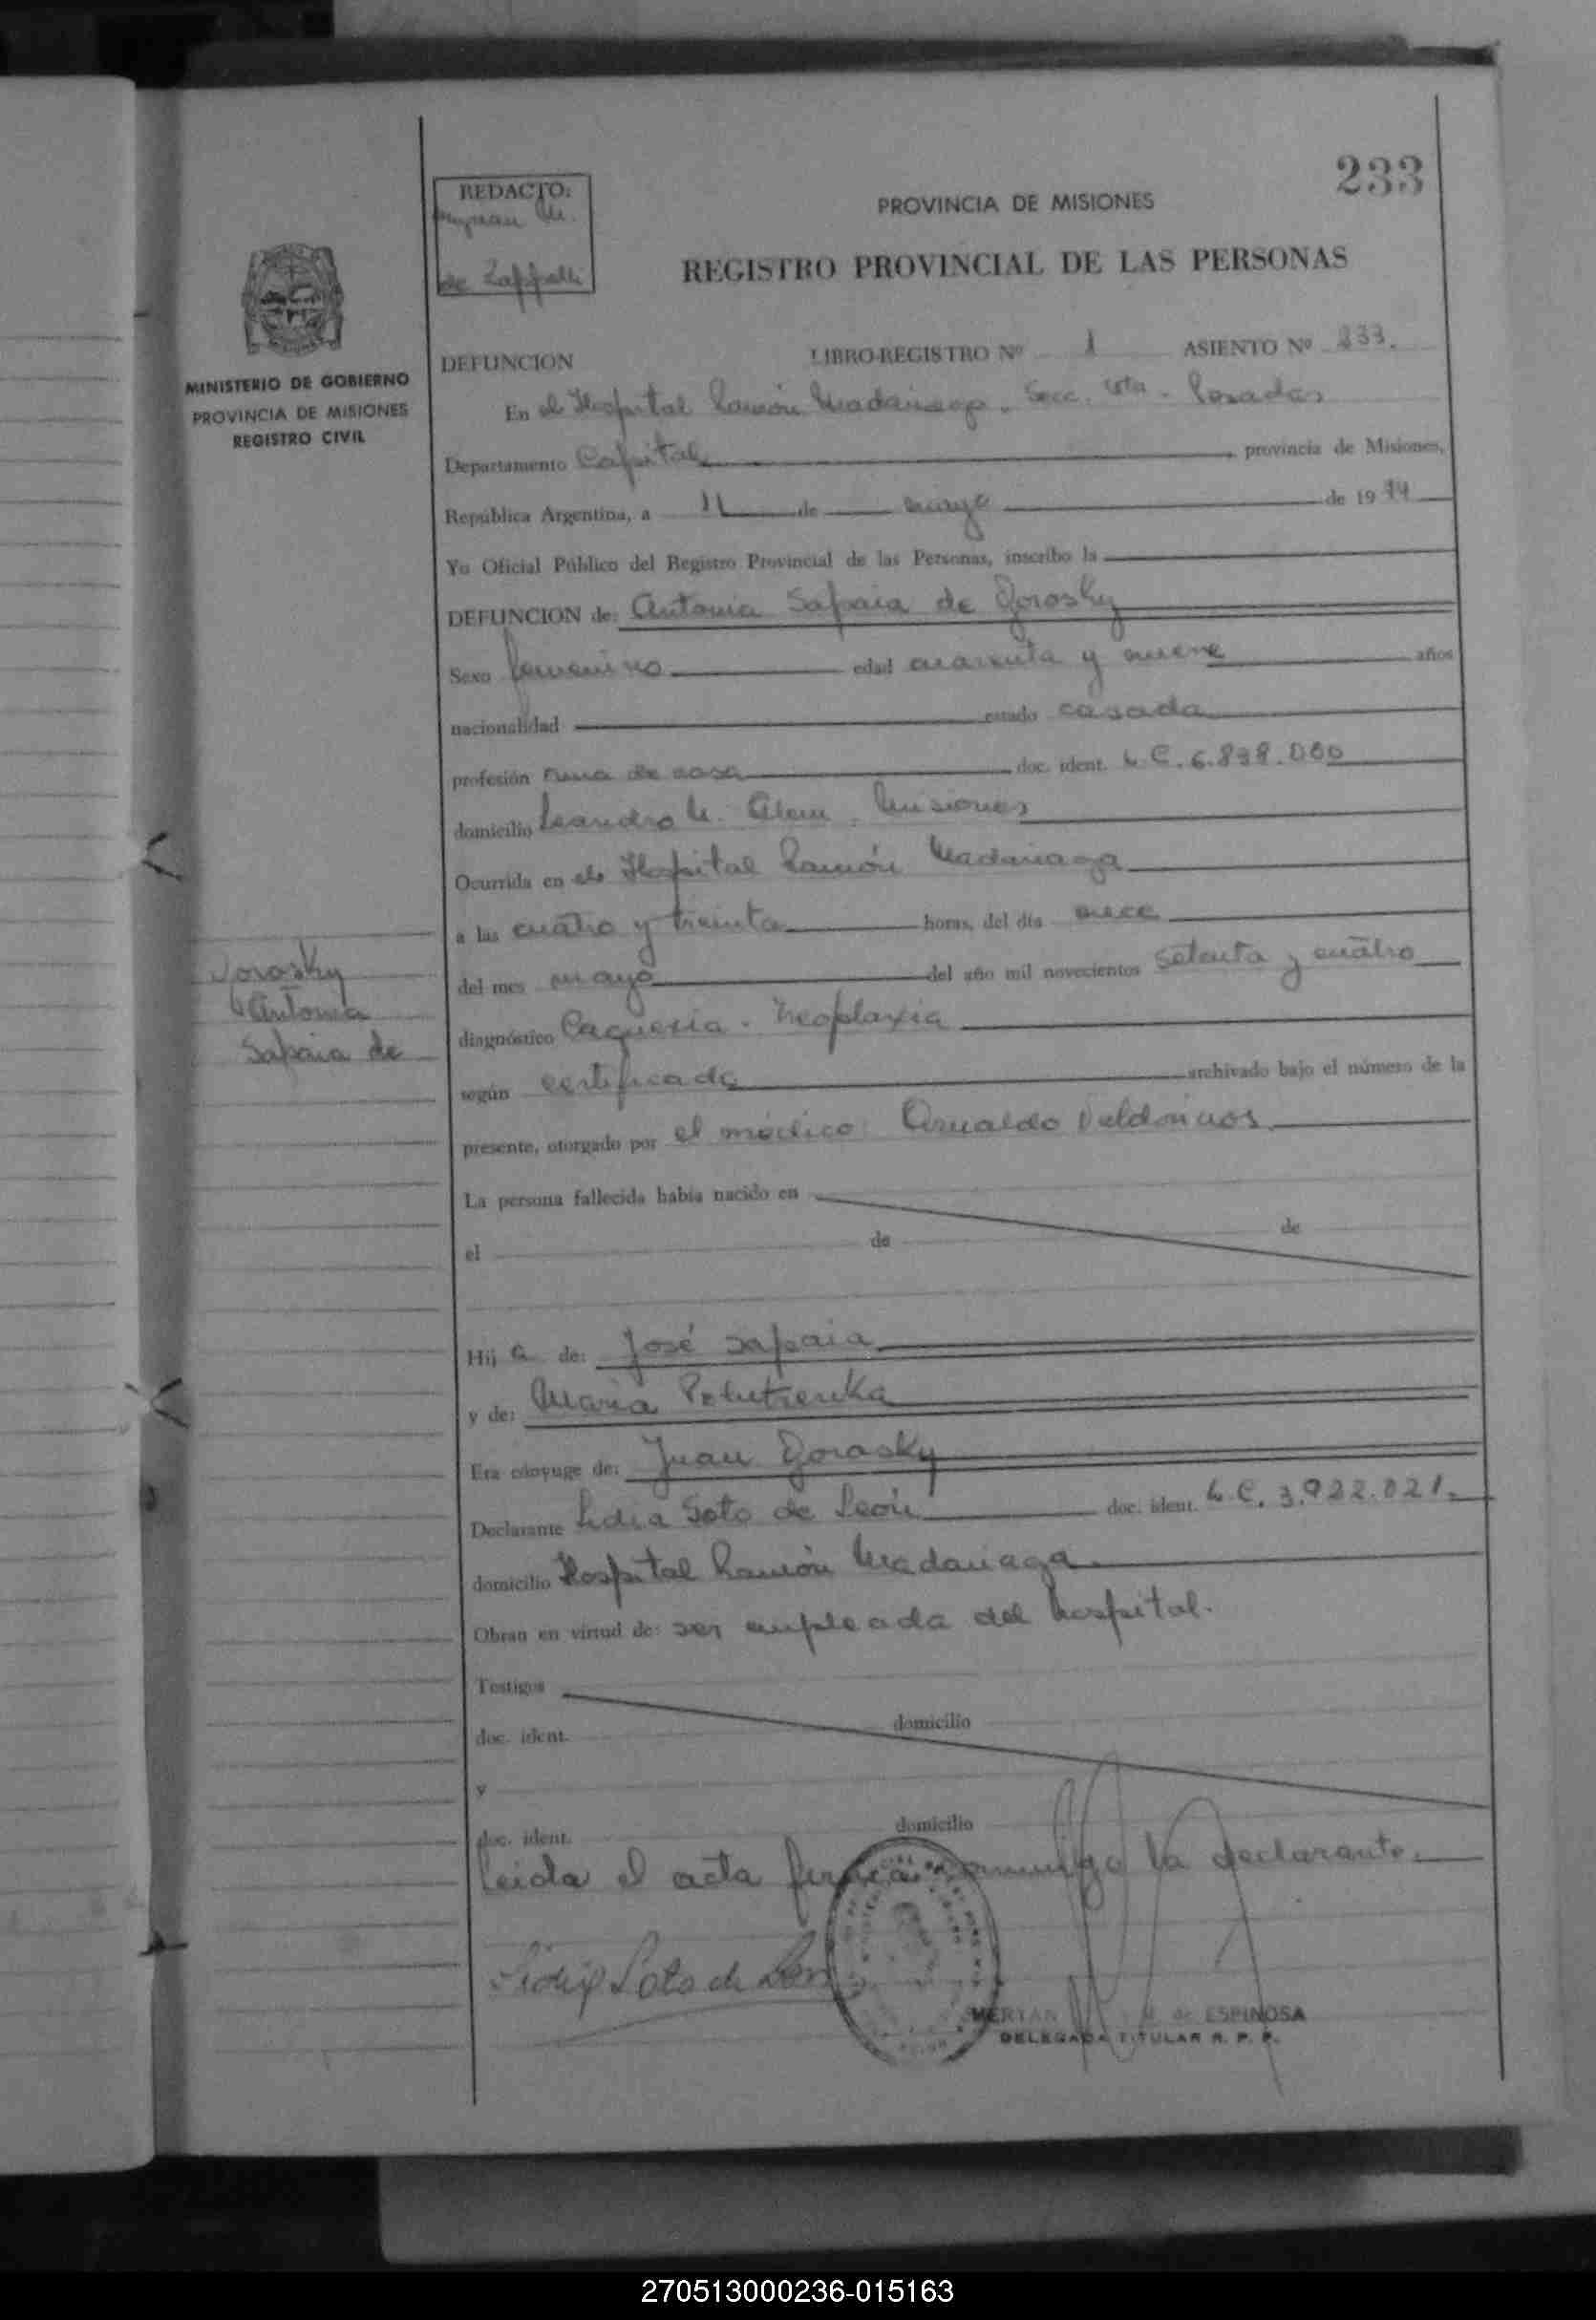 233
REDACTO:
de Zappelli
PROVINCIA DE MISIONES
REGISTRO PROVINCIAL DE LAS PERSONAS
MINISTERIO DE GOBIERNO
PROVINCIA DE MISIONES
REGISTRO CIVIL
DEFUNCION LIBRO-REGISTRO Nº 1 ASIENTO Nº 233.
En el Hospital Ramón Madariaga - Secc. - Posadas
Departamento Capital provincia de Misiones,
República Argentina, a 11 de mayo de 1974
Yo Oficial Público del Registro Provincial de las Personas, inscribo la
DEFUNCION de: Antonia Sapaia de Dorosky
Sexo femenino edad cuarenta y nueve años
nacionalidad estado casada
profesión ama de casa doc. ident. L.C. 6.898.000
domicilio Leandro N. Alem. Misiones
Ocurrida en el Hospital Ramón Madariaga
a las cuatro y treinta horas, del día once
del mes mayo del año mil novecientos setenta y cuatro
Dorosky
Antonia
Sapaia de
diagnóstico Caquexia - Neoplaxia
según certificado archivado bajo el número de la
presente, otorgado por el médico Arnaldo Valdovinos
La persona fallecida había nacido en
el de de
Hij a de: José Sapaia
y de: María
Era cónyuge de: Juan Dorosky
Declarante Lidia Soto de León doc. ident. L.C. 3.922.021.
domicilio Hospital Ramón Madariaga.
Obran en virtud de: ser empleada del hospital.
Testigos
doc. ident. domicilio
y
doc. ident. domicilio
Leida el acta firma conmigo la declarante.
Lidia Soto de León
de ESPINOSA
DELEGADA TITULAR R. P. P.
270513000236-015163